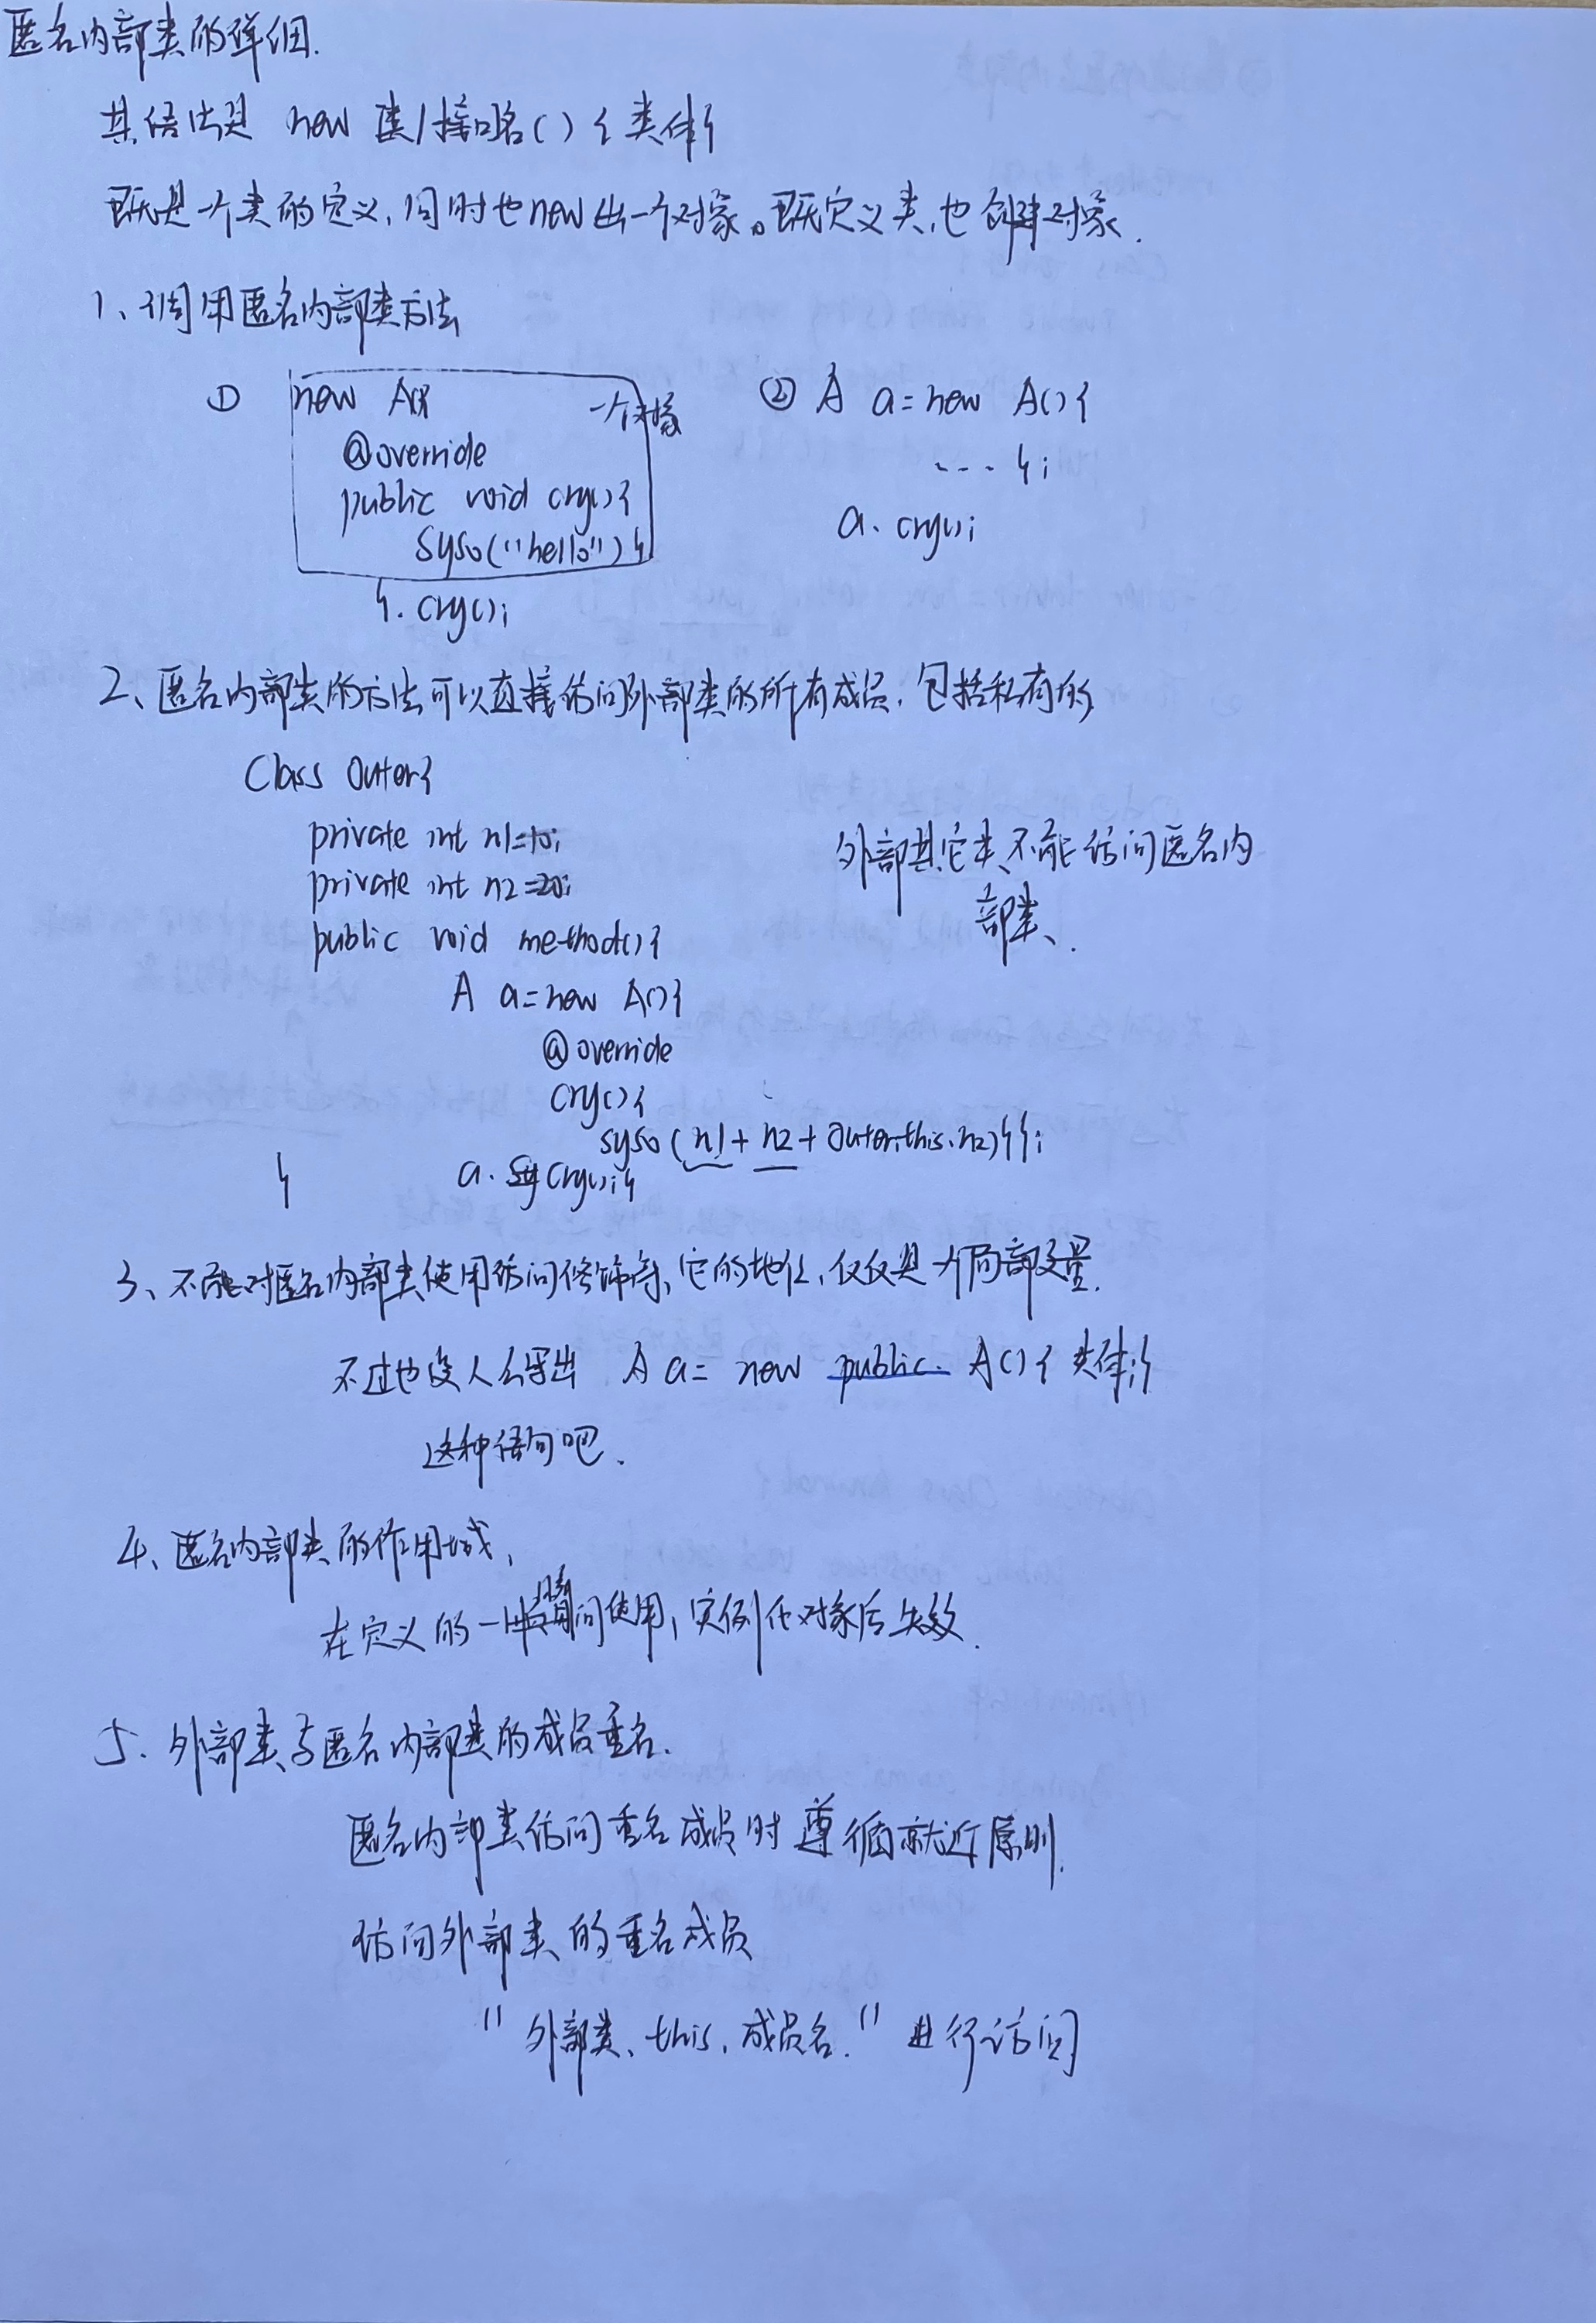 匿名内部类的详细.
其语法是 new 类/接口名(){类体}
既是一个类的定义,同时也new出一个对象。既定义类,也创建对象.
1、调用匿名内部类方法
① new A(){ 一个对象
@override
public void cry(){
syso("hello")}
}.cry();
② A a=new A(){
....};
a.cry();
2、匿名内部类的方法可以直接访问外部类的所有成员,包括私有的
Class Outer{
private int n1=10;
private int n2=20;
public void method(){
A a=new A(){
@override
cry(){
syso(n1+n2+Outer.this.n2)}};
a.cry();}
}
外部其它类不能访问匿名内
部类、.
3、不能对匿名内部类使用访问修饰符,它的地位,仅仅是一个局部变量.
不过也没人会写出 A a= new public A(){类体;}
这种语句吧.
4、匿名内部类的作用域,
在定义的一瞬间使用,实例化对象后失效.
5.外部类与匿名内部类的成员重名.
匿名内部类访问重名成员时遵循就近原则.
访问外部类的重名成员
"外部类、this.成员名."进行访问